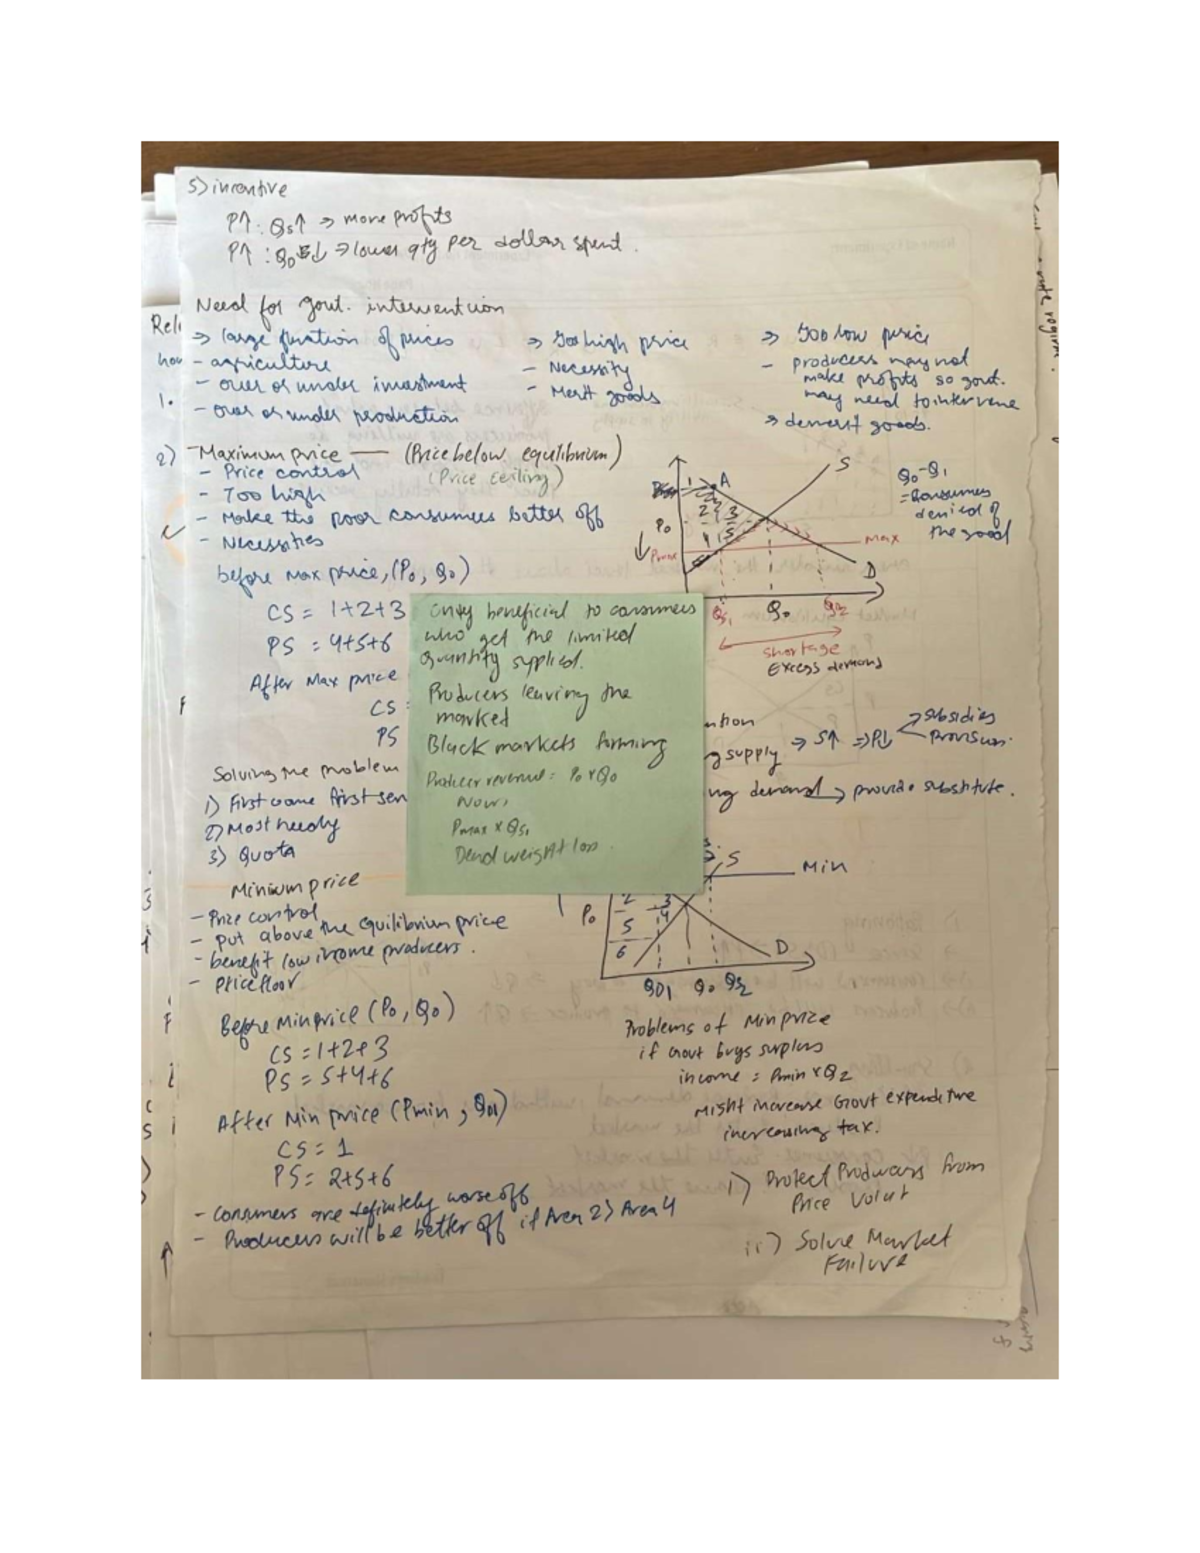 5) incentive
P↑ : Qs↑ → more profits
P↑ : QD↓ → lower qty per dollar spent.
Need for govt. intervention
⇒ large fluation of prices
- agriculture
- over or under investment
- over or under production
⇒ Too high price
- Necessity
- Merit goods
⇒ Too low price
- producers may not
make profits so govt.
may need to intervene
⇒ demerit goods.
Rel
how
1.
2) Maximum price — (Price below equilibrium)
- Price control (Price ceiling)
- Too high
- Make the poor consumers better off
- Necessities
before max price, (P0, Q0)
CS = 1+2+3
PS = 4+5+6
After Max price
CS =
PS
A
S
P0
Pmax
max
D
Qs1 Q0 Q2
shortage
Excess demand
Q0-Q1
= consumers
denied of
the good
Only beneficial to consumers
who get the limited
quantity supplied.
Producers leaving the
marked
Black markets forming
Producer revenue = P0 x Q0
Now,
Pmax x Qs1
Dead weight loss.
Solving the problem
1) First come first ser
2) Most needy
3) Quota
ntion
g supply ⇒ S↑ ⇒ P↓
subsidies
provision.
ng demand → provide substitute.
Minimum price
- Price control
- put above the equilibrium price
- benefit low income producers.
- Price floor
S
Min
P0
2 3
5 4
6
D
QD1 Q0 Qs2
Before Min price (P0, Q0)
CS = 1+2+3
PS = 5+4+6
After Min price (Pmin, QD1)
CS = 1
PS = 2+5+6
- consumers are definitely worse off
- Producers will be better off if Area 2 > Area 4
Problems of Min price
if Govt buys surplus
income = Pmin x Q2
Might increase Govt expenditure
increasing tax.
i) Protect Producers from
Price Volat
ii) Solve Market
Failure